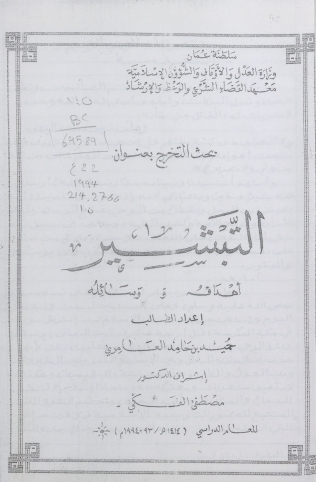 سلطنة عمان
وزارة العدل والأوقاف والشؤون الإسلامية
معهد القضاء الشرعي والوعظ والإرشاد
BC
69589
ع ٢٢
1994
214.2766
بحث التخرج بعنوان
التبشير
أهدافه و وسائله
إعداد الطالب
حميد بن حامد العامري
إشراف الدكتور
مصطفى الفكي
للعام الدراسي (١٤١٤هـ / ٩٣-١٩٩٤م)